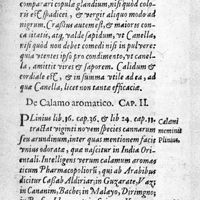 compari copulæ glandium, nisi quòd colo-
ris est spadicei, & vergit aliquo modo ad
nigrum. Crassius autem est, & maioris con-
cauitatis, atq; valde sapidum, vt Canella,
nisi quòd non debet comedi nisi in puluere:
quia ventes ipsi pro condimento, vt canel-
la, amittit vires & saporem. Calidum &
cordiale est, & in summa vtile adeo, ad
quæ Canella, licet non tanta efficacia.
De Calamo aromatico. CAP. II.
PLinius lib. 16. cap. 36, & lib. 24. cap. 11.
tractat viginti nouem species cannarum
seu arundinum, inter quas mentionem facit
vnius odoratæ, quæ nascitur in India Ori-
entali. Intelligent verum calamum aromati-
ticum Pharmacopoliorū, qui ab Arabibus
dicitur Cassab Aldirira: in Guzarate, Vaz:
in Cananim, Bache: in Malayo, Dirimguo:
Calami
meminit
Plinius.